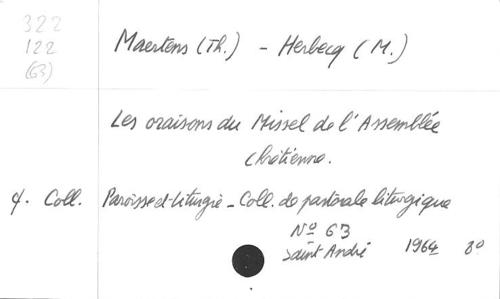 322
122
(63)
Maertens (Th.) - Herbecq (M.)
Les oraisons du Missel de l'Assemblée
chrétienne.
cf. Coll. Paroisse et Liturgie - Coll. de pastorale liturgique
N° 63
Saint André 1964 8°